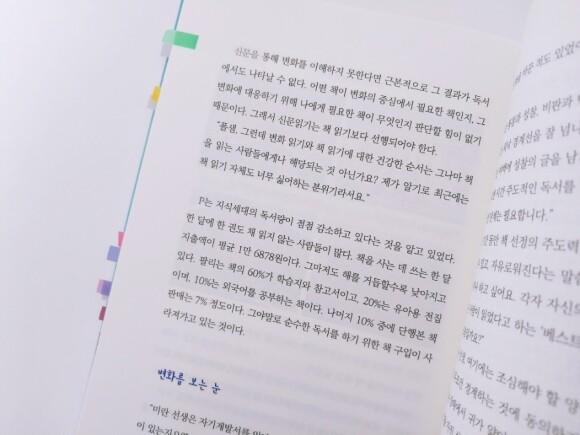 신문을 통해 변화를 이해하지 못한다면 근본적으로 그 결과가 독서
에서도 나타날 수 없다. 어떤 책이 변화의 중심에서 필요한 책인지, 그
변화에 대응하기 위해 나에게 필요한 책이 무엇인지 판단할 힘이 없기
때문이다. 그래서 신문읽기는 책 읽기보다 선행되어야 한다.
"플샘, 그런데 변화 읽기와 책 읽기에 대한 건강한 순서는 그나마 책
을 읽는 사람들에게나 해당되는 것 아닌가요? 제가 알기로 최근에는
책 읽기 자체도 너무 싫어하는 분위기라서요."
P는 지식세대의 독서량이 점점 감소하고 있다는 것을 알고 있었다.
한 달에 한 권도 채 읽지 않는 사람들이 많다. 책을 사는 데 쓰는 한 달
지출액이 평균 1만 6878원이다. 그마저도 해를 거듭할수록 낮아지고
있다. 팔리는 책의 60%가 학습지와 참고서이고, 20%는 유아용 전집
이며, 10%는 외국어를 공부하는 책이다. 나머지 10% 중에 단행본 책
판매는 7% 정도이다. 그야말로 순수한 독서를 하기 위한 책 구입이 사
라져가고 있는 것이다.
변화를 보는 눈
"미란 선생은 자기개발서를
이 있는지
적도 있었
성찰, 비판과
경계선을 잘 넘
성찰의 글을 남
주도적인 독서를
필요합니다."
동안 책 선정의 주도력
자유로워진다는 말씀
하고 싶어요. 각자 자신의
읽었다고 하는 '베스트
여기에는 조심해야 할
경계하는 것에 동의하
에서 귀가